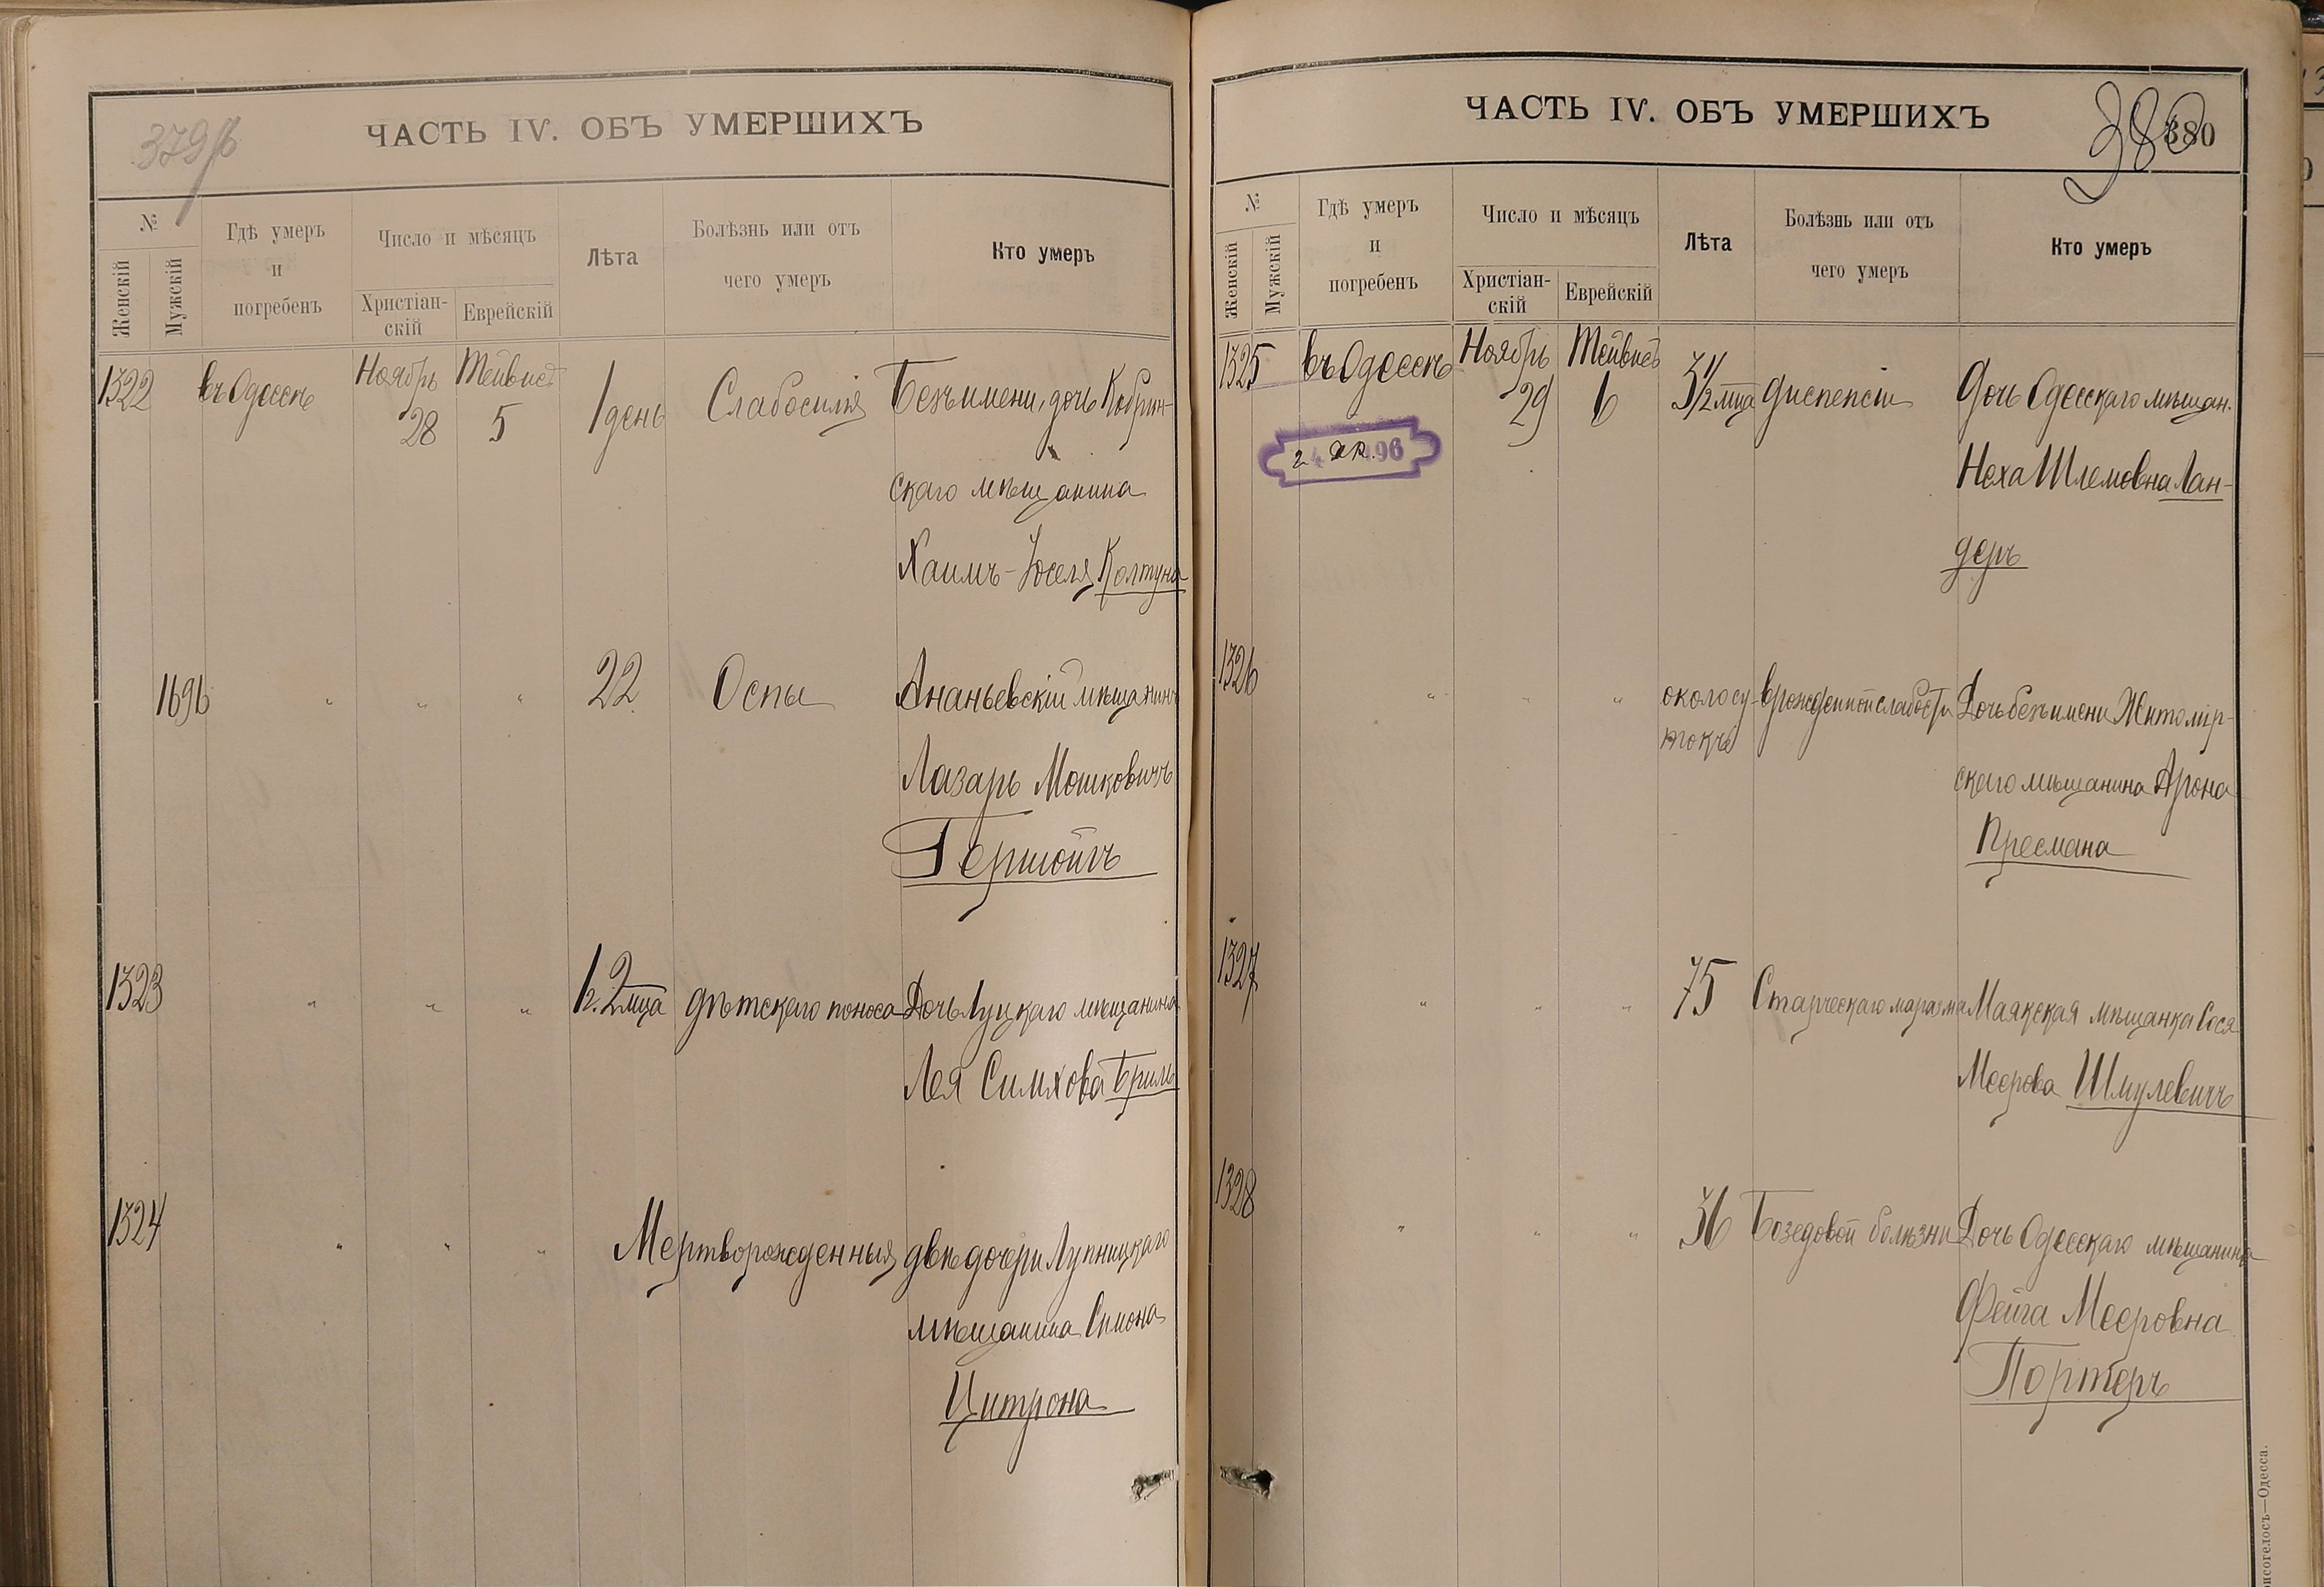 379/б
ЧАСТЬ IV. ОБЪ УМЕРШИХЪ
№
Женскій
Мужскій
Гдѣ умеръ
и
погребенъ
Число и мѣсяцъ
Христіан-
скій
Еврейскій
Лѣта
Болѣзнь или отъ
чего умеръ
Кто умеръ
1322 въ Одессѣ Ноябрь 28 Тейвисъ 5 1 день Слабосилія Безъ имени, дочь Кобрин-
скаго мѣщанина
Хаимъ-Іоселя Колтуна
1696 " " " 22 Оспы Ананьевскій мѣщанинъ
Лазарь Мошковичъ
Гершойгъ
1323 " " " 2 мца дѣтскаго поноса Дочь Луцкаго мѣщанина
Лея Симхова Бриль
1324 " " " Мертворожденныя двѣ дочери
мѣщанина Симона
Цитрона
ЧАСТЬ IV. ОБЪ УМЕРШИХЪ
380
380
№
Женскій
Мужскій
Гдѣ умеръ
и
погребенъ
Число и мѣсяцъ
Христіан-
скій
Еврейскій
Лѣта
Болѣзнь или отъ
чего умеръ
Кто умеръ
1325 въ Одессѣ Ноябрь 29 Тейвисъ 6 3 1/2 мца диспепсіи Дочь Одесскаго мѣщан.
Неха Шлемовна Лан-
деръ
1326 " " " около су- врожденной слабости Дочь безъ имени Житомір-
токъ
скаго мѣщанина Арона
Пресмана
1327 " " " 75 Старческаго маразма Маякская мѣщанка Сося
Меерова Шмулевичъ
1328 " " " 36 Базедовой болѣзни Дочь Одесскаго мѣщанина
Фейга Мееровна
Портеръ
—Одесса.